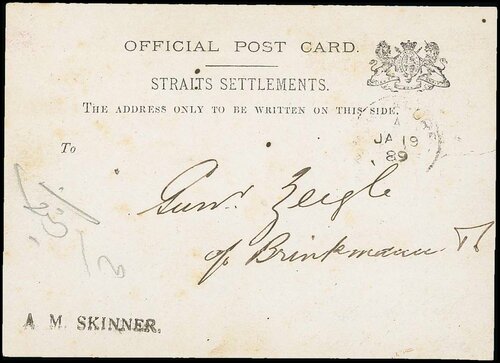 OFFICIAL POST CARD.
STRAITS SETTLEMENTS.
THE ADDRESS ONLY TO BE WRITTEN ON THIS SIDE.
A
JA 19
89
To
Zeigle
c/o Brinkmann
A M. SKINNER.